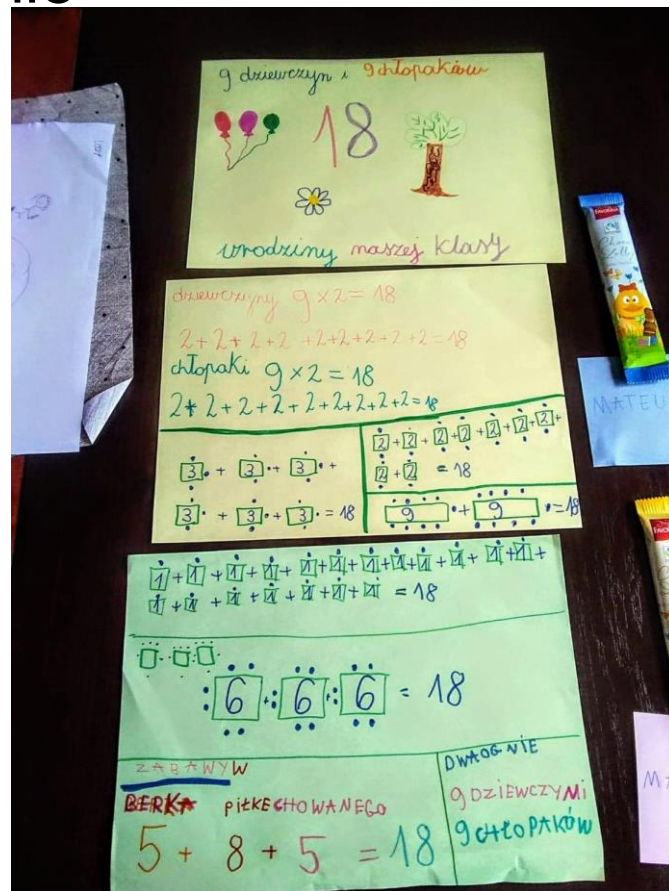 9 dziewczyn i 9 chłopaków
18
urodziny naszej klasy
dziewczyny 9 x 2 = 18
2 + 2 + 2 + 2 + 2 + 2 + 2 + 2 + 2 = 18
chłopaki 9 x 2 = 18
2 + 2 + 2 + 2 + 2 + 2 + 2 + 2 + 2 = 18
3 + 3 + 3 +
3 + 3 + 3 = 18
2 + 2 + 2 + 2 + 2 + 2 + 2 +
2 + 2 = 18
9 + 9 = 18
1 + 1 + 1 + 1 + 1 + 1 + 1 + 1 + 1 + 1 + 1 + 1 +
1 + 1 + 1 + 1 + 1 + 1 + 1 = 18
6 + 6 + 6 = 18
ZABAWY W
BERKA PIŁKE CHOWANEGO
5 + 8 + 5 = 18
DWAOGNIE
9 DZIEWCZYN i
9 CHŁOPAKÓW
MATEU
M